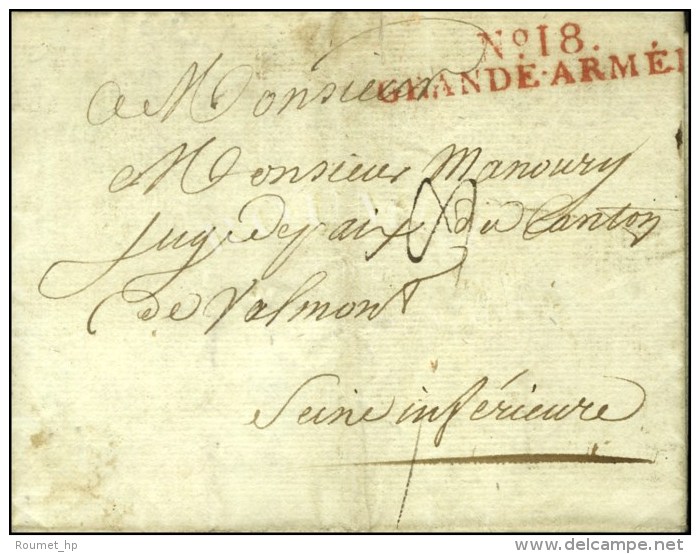 No 18.
GRANDE·ARMÉE
A Monsieur
A Monsieur Manoury
Juge de paix du Canton
de Valmont
Seine inférieure
Roumet_hp
www.delcampe.net